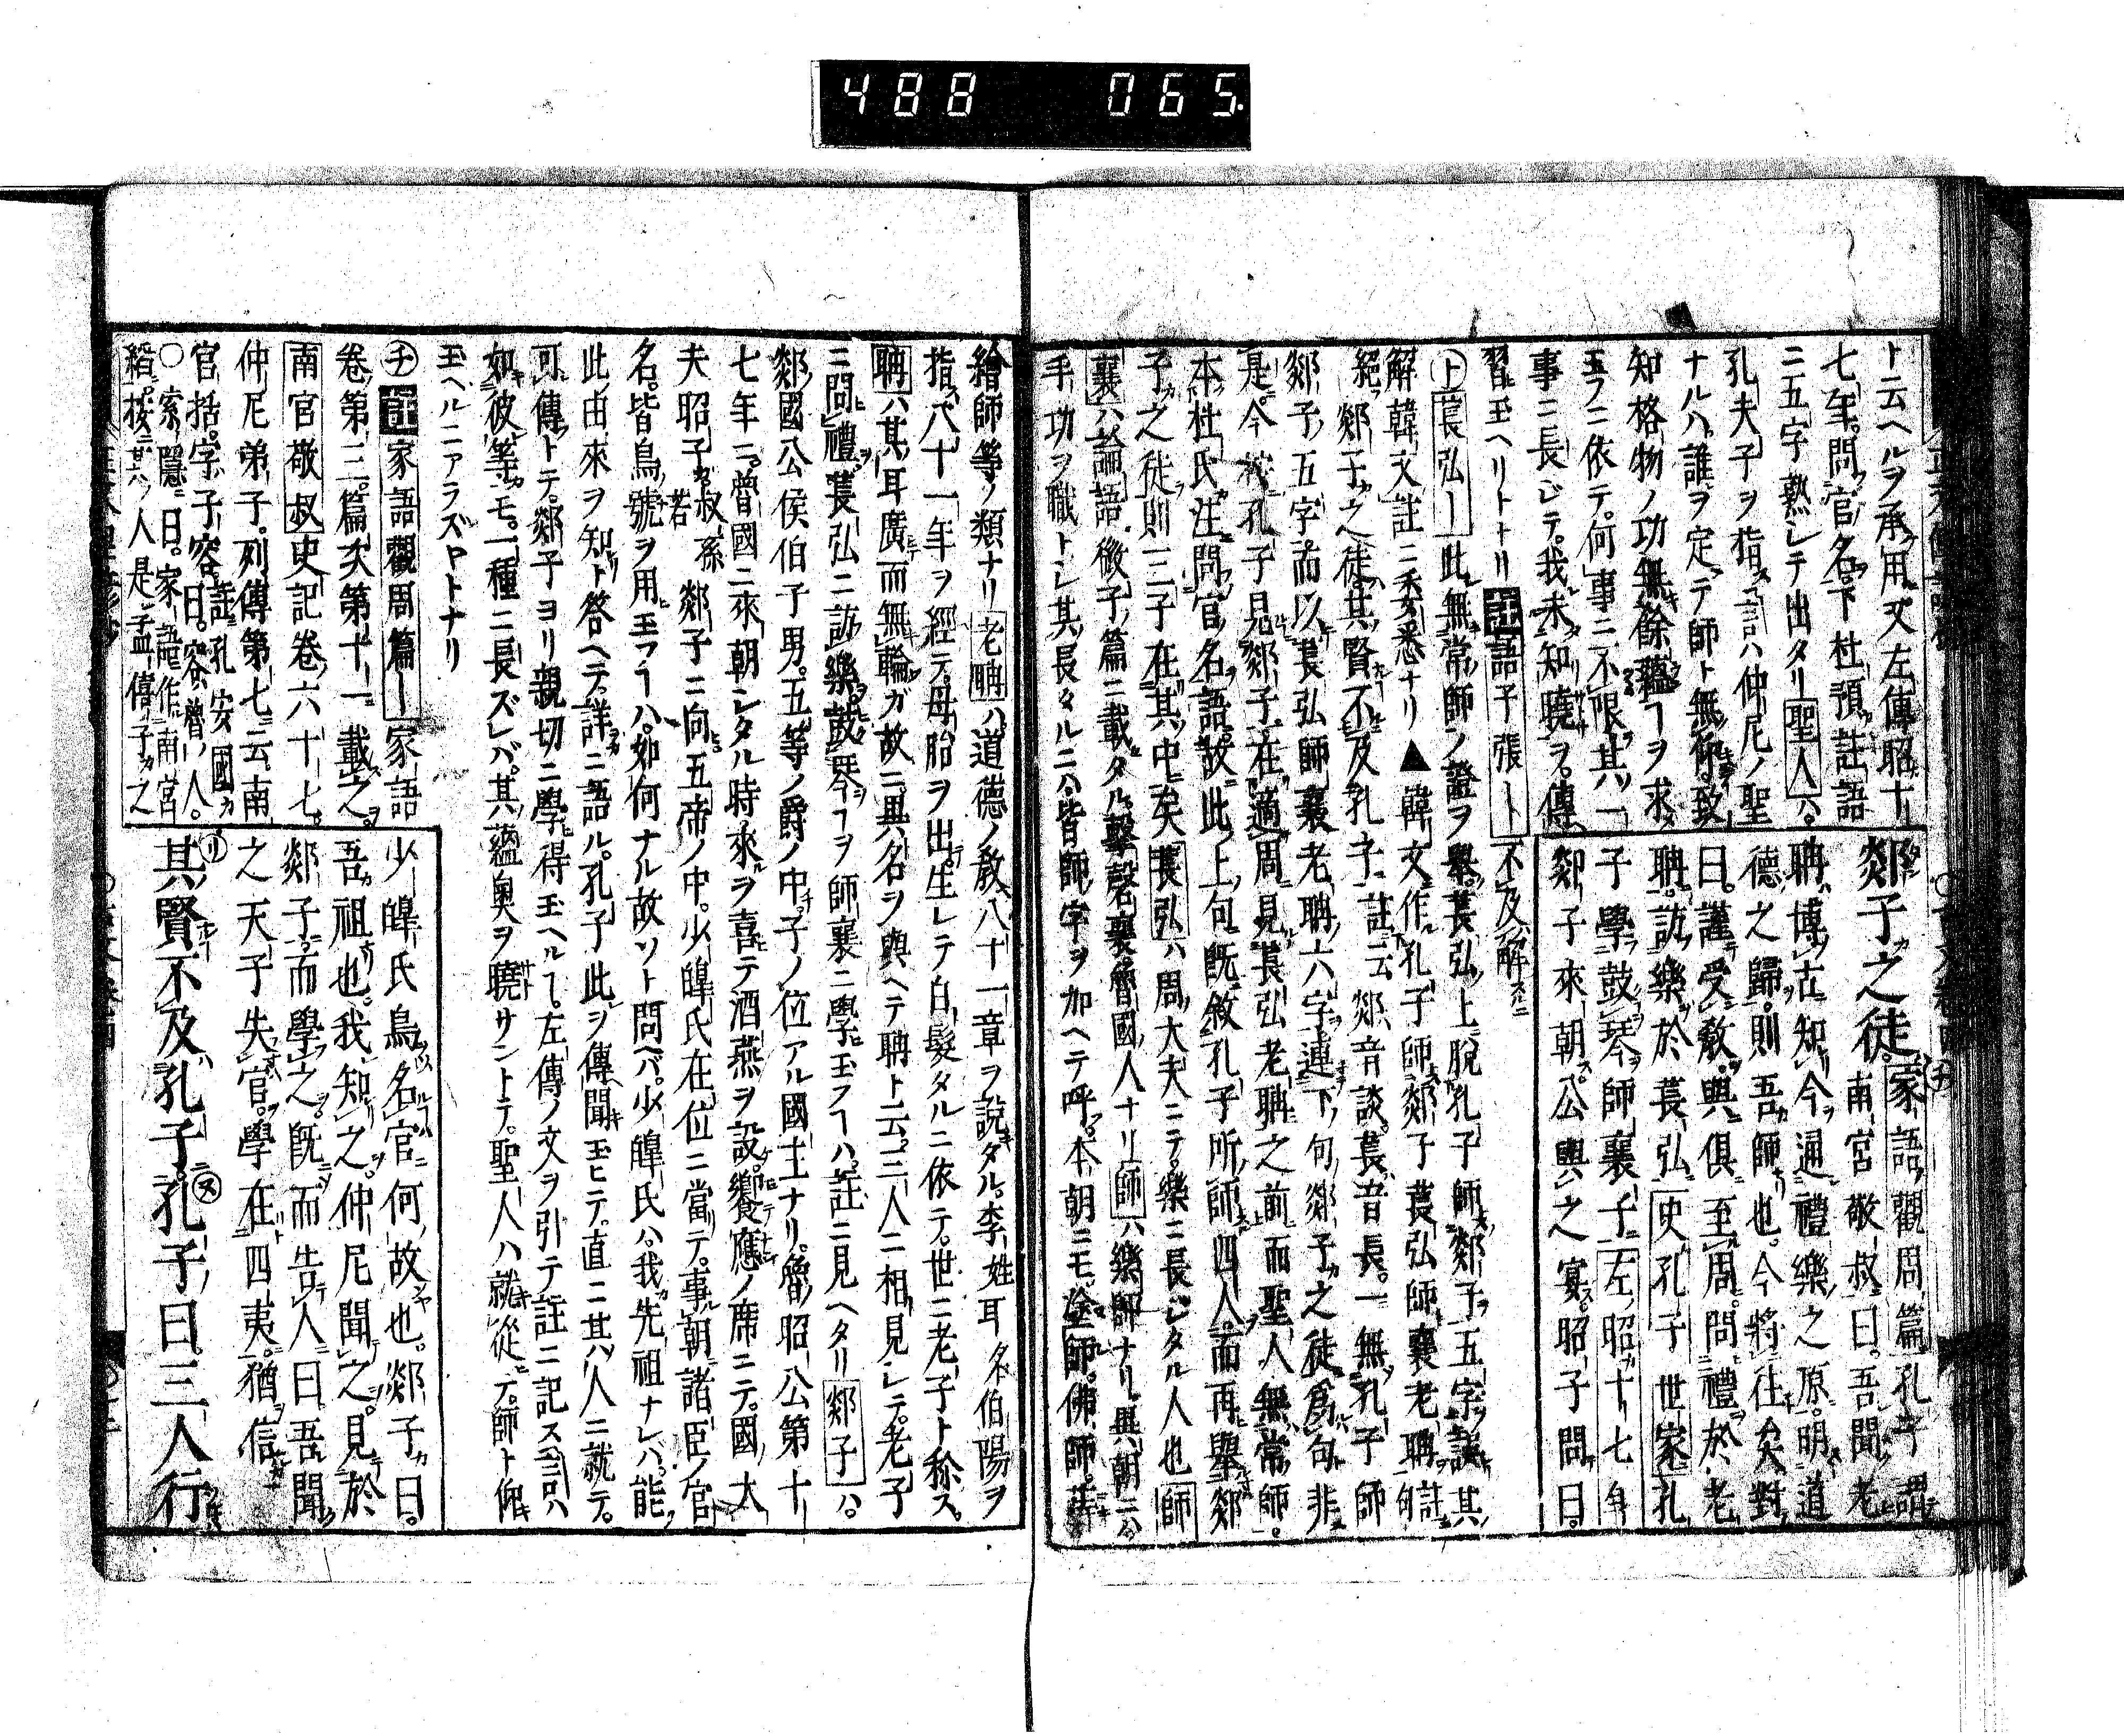 488 065
ト云ヘルヲ承用又左傳昭十
七年問官名下杜預註語
ニ五字熟シテ出タリ聖人ハ
孔夫子ヲ指ス言ハ仲尼ノ聖
ナルハ誰ヲ定テ師ト無仰致
知格物ノ功無餘蘊ヿヲ求
玉フニ依テ何事ニ不限其一
事ニ長ジテ我未知曉ヲ傳
習玉ヘリトナリ 註語子張ー不及解
郯子之徒家語觀周篇孔子謂
南宮敬叔曰吾聞老
聃博古知今通禮樂之原明道
德之歸則吾師也今將往矣對
曰謹受敎與俱至周問禮於老
聃訪樂於萇弘史孔子世家孔
子學鼓琴師襄子左昭十七年
郯子來朝公與之宴昭子問曰
ト萇弘ー此無常師ノ證ヲ擧萇弘上脫孔子師郯子五字誤其
解韓文註ニ委悉ナリ▲韓文作孔子師郯子萇弘師襄老聃句註
絕郯子之徒其賢不及孔子註云郯音談萇音長一無孔子師
郯子五字而以萇弘師襄老聃六字連下句郯子之徒爲句非
是今按孔子見郯子在適周見萇弘老聃之前而聖人無常師
本杜氏注問官名語故此上句旣敘孔子所師四人而再擧郯
子之徒則三子在其中矣萇弘ハ周大夫ニテ樂ニ長ジタル人也師
襄ハ論語微子篇ニ載タル擊磬襄魯國人ナリ師ハ樂師ナリ異朝ニハ
手功ヲ職トシ其長タルニハ皆師字ヲ加ヘテ呼本朝ニモ塗師佛師蒔
繪師等ノ類ナリ老聃ハ道德ノ敎八十一章ヲ說タル李姓耳名伯陽ヲ
指八十一年ヲ經テ母胎ヲ出生レテ白髮タルニ依テ世ニ老子ト稱ス
聃ハ其耳廣而無輪ガ故ニ異名ヲ與ヘテ聃ト云三人ニ相見シテ老子
ニ問禮萇弘ニ訪樂鼓琴ヿヲ師襄ニ學玉フヿハ註ニ見ヘタリ郯子ハ
郯國公侯伯子男五等ノ爵ノ中子ノ位アル國主ナリ魯昭公第十
七年ニ魯國ニ來朝シタル時來ヲ喜テ酒燕ヲ設饗應ノ席ニテ國大
夫昭子叔孫若郯子ニ向五帝ノ中少皥氏在位ニ當テ事朝諸臣ノ官
名皆鳥號ヲ用玉フヿハ如何ナル故ソト問ヘバ少皥氏ハ我先祖ナレバ能
此由來ヲ知ト答ヘテ詳ニ語ル孔子此ヲ傳聞玉ヒテ直ニ其人ニ就テ
可傳トテ郯子ヨリ親切ニ學得玉ヘルヿ左傳ノ文ヲ引テ註ニ記ス言ハ
如彼等モ一種ニ長ズレバ其蘊奧ヲ曉サントテ聖人ハ就從テ師ト仰
玉ヘルニアラズヤトナリ
チ註家語觀周篇ー家語
卷第三篇次第十一載之
南宮敬叔史記卷六十七
仲尼弟子列傳第七云南
宮括字子容註孔安國曰容魯人
○索隱曰家語作南宮
縚按其人是孟僖子之
少皥氏鳥名官何故也郯子曰
吾祖也我知之仲尼聞之見於
郯子而學之旣而告人曰吾聞
之天子失官學在四夷猶信
リ其賢不及孔子ヌ孔子曰三人行